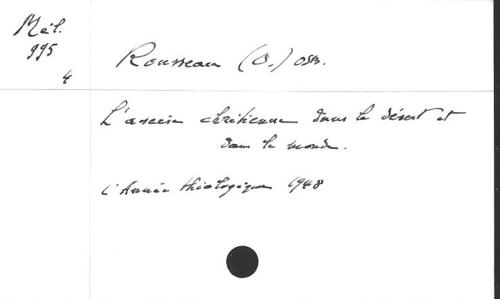 Mél.
995
4
Rousseau (O.) OSB.
L'ascèse chrétienne dans le désert et
dans le monde.
L'Année théologique 1948